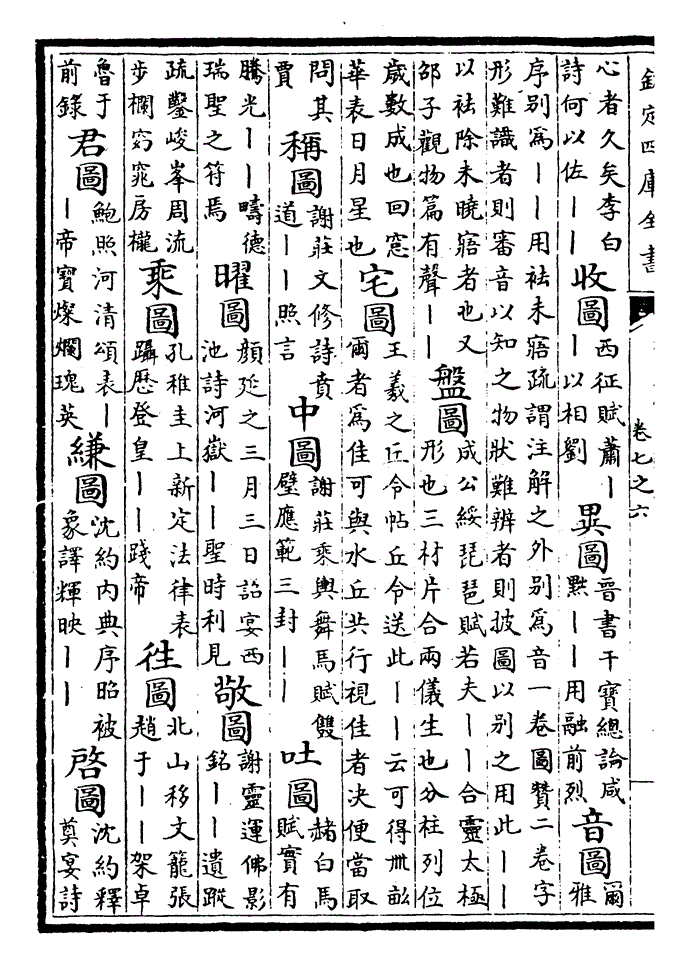 欽定四庫全書 卷七之六
心者久矣李白詩何以佐丨丨 收圖 西征賦蕭丨丨以相劉 異圖 晉書干寶總論咸黙丨丨用融前烈 音圖 爾雅
序别爲丨丨用祛未寤疏謂注解之外别爲音一卷圖贊二卷字形難識者則審音以知之物狀難辨者則披圖以别之用此丨丨
以祛除未曉寤者也又邵子觀物篇有聲丨丨 盤圖 成公綏琵琶賦若夫丨丨合靈太極形也三材片合兩儀生也分柱列位
歲數成也回窻華表日月星也 宅圖 王羲之丘令帖丘令送此丨丨云可得卌畝爾者爲佳可與水丘共行視佳者决便當取
問其賈 稱圖 謝莊文修詩賁道丨丨照言 中圖 謝莊乘輿舞馬賦雙璧應範三封丨丨 吐圖 赭白馬賦實有
騰光丨丨疇德瑞聖之符焉 曜圖 顔延之三月三日詔宴西池詩河嶽丨丨聖時利見 敬圖 謝靈運佛影銘丨丨遺蹤
疏鑿峻峯周流步欄窈窕房櫳 乘圖 孔稚圭上新定法律表躡歴登皇丨丨踐帝 徃圖 北山移文籠張趙于丨丨架卓
魯于前錄 君圖 鮑照河清頌表丨丨帝寶燦爛瑰英 縑圖 沈約内典序昭被象譯輝映丨丨 啓圖 沈約釋奠宴詩